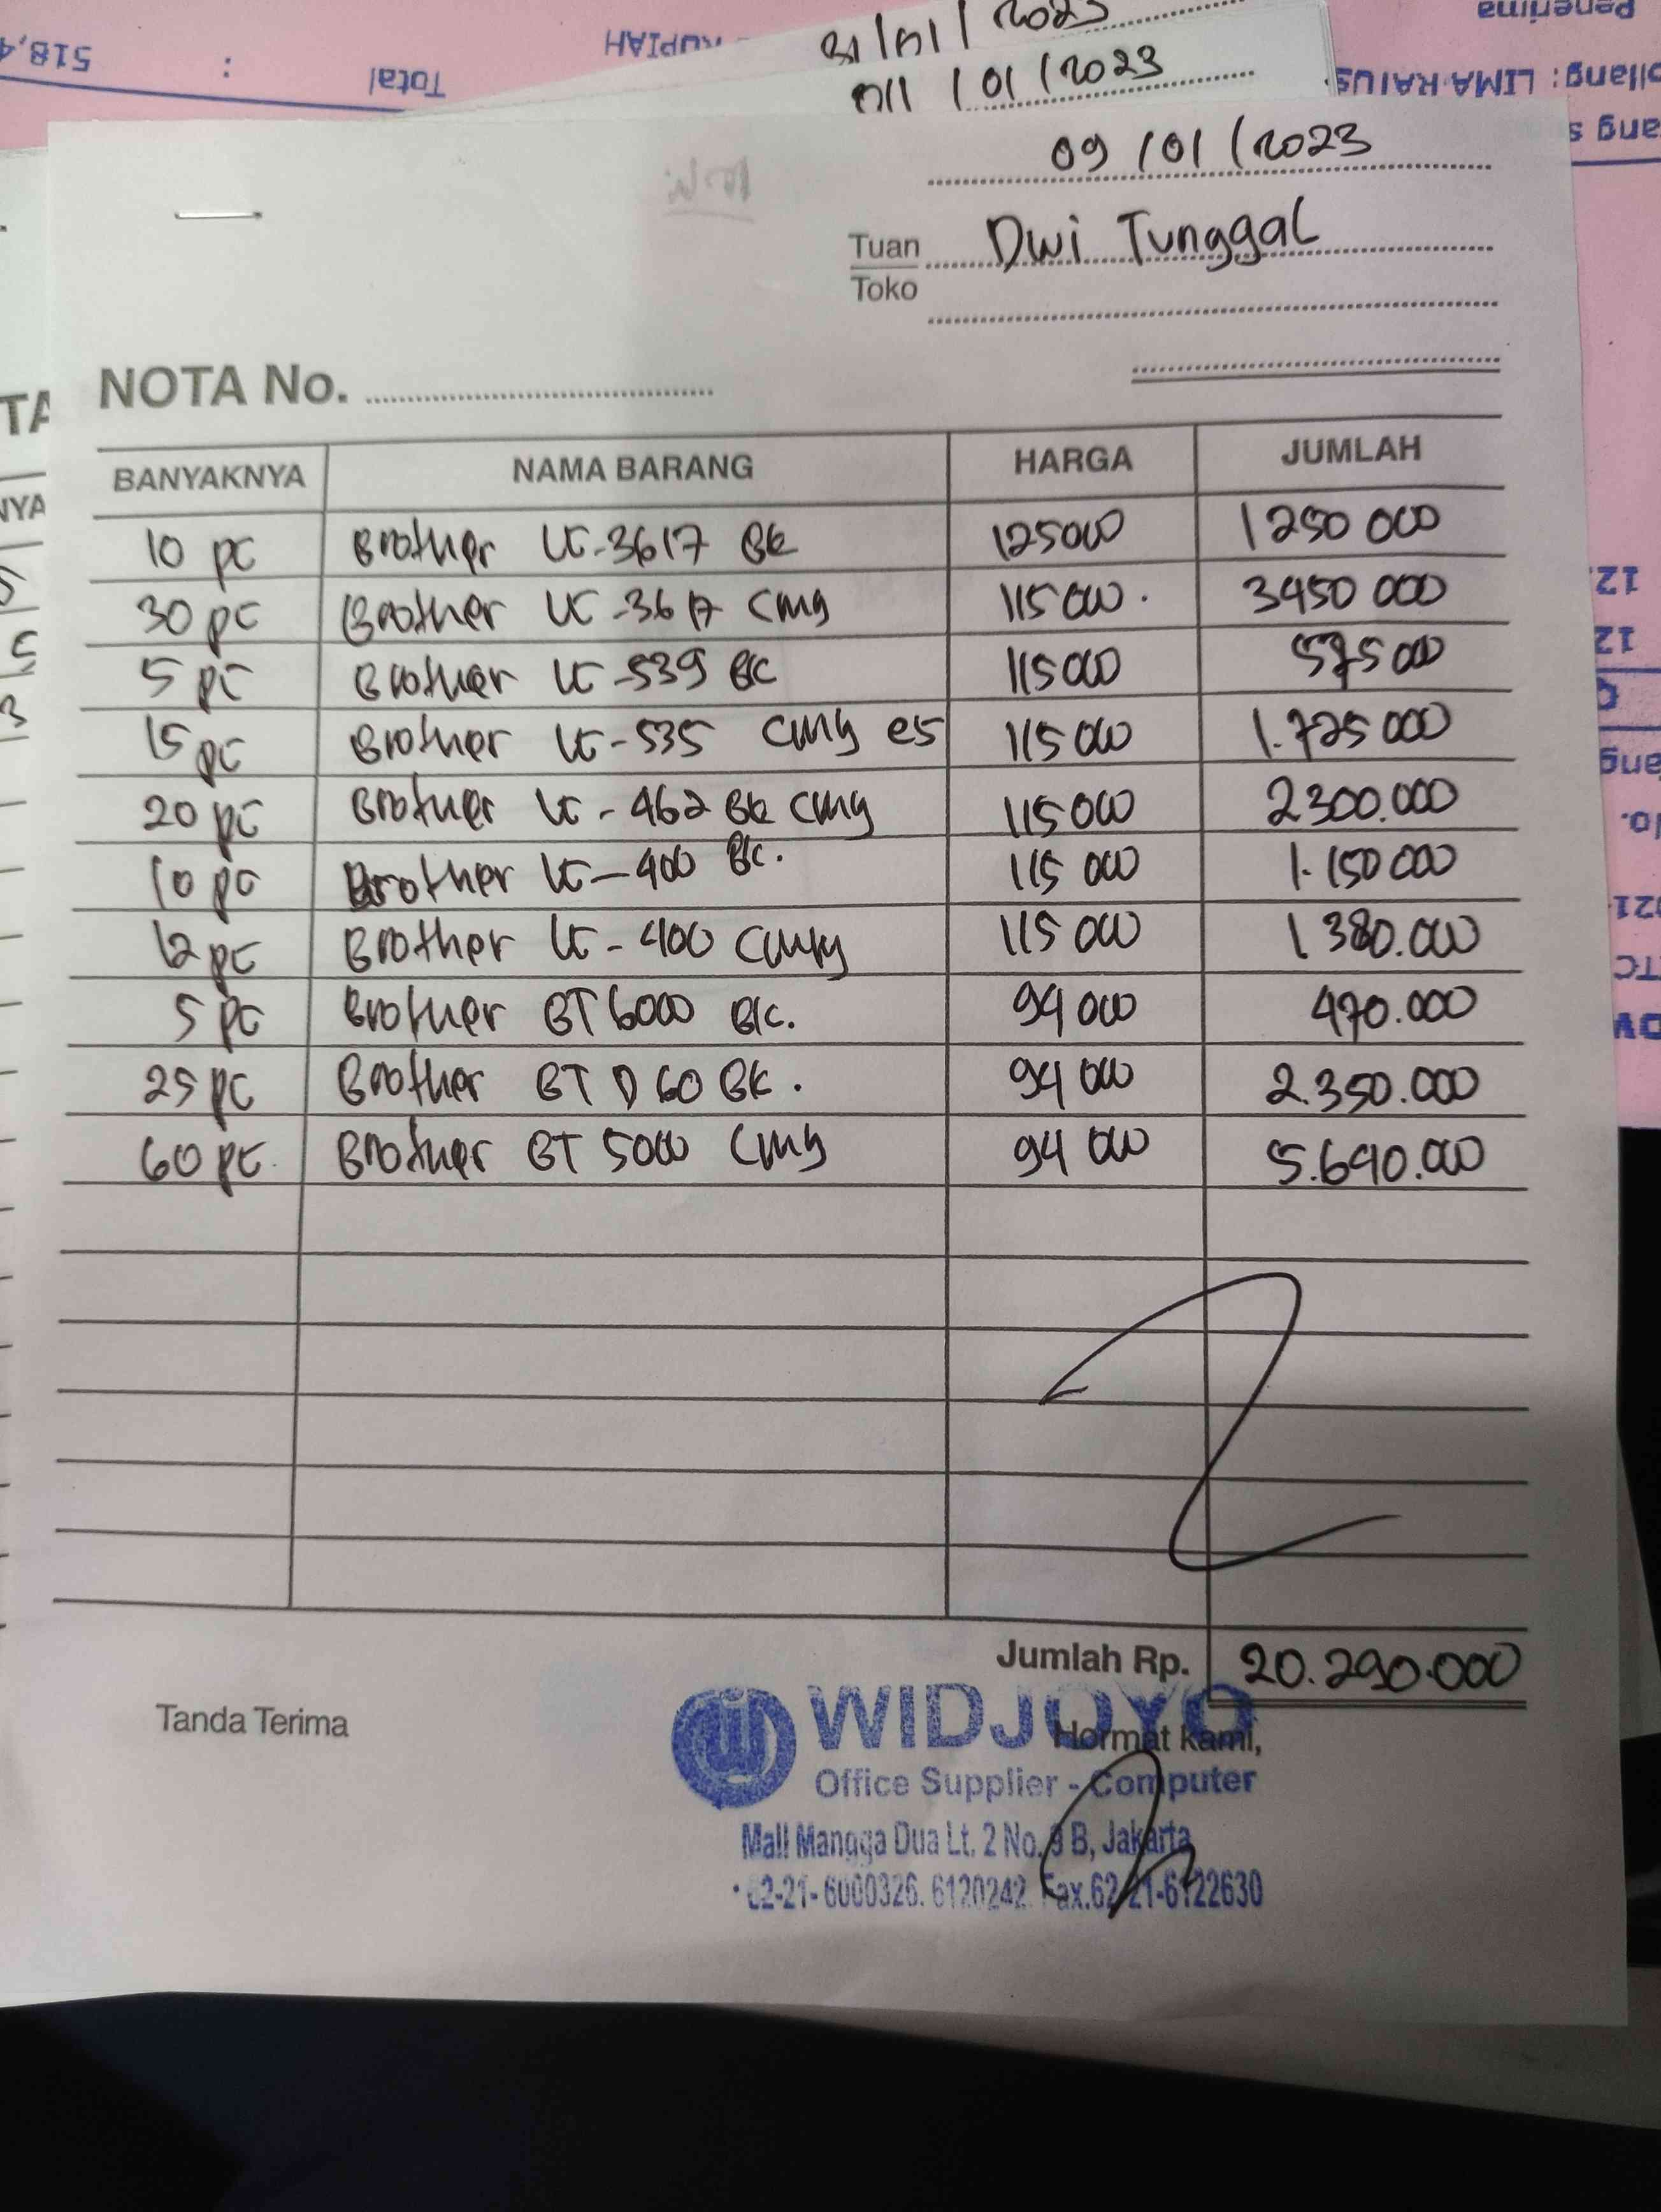 518,4
:
Total
RUPIAH
Penerima
31/01/2023
/01/2023
09/01/2023
Tuan Dwi Tunggal
Toko
NOTA No.
BANYAKNYA NAMA BARANG HARGA JUMLAH
10 pc Brother LC-3617 BK 125000 1250 000
30 pc Brother LC-3617 CMY 115 000. 3450 000
5 pc Brother LC-539 BK 115000 575 000
15 pc Brother LC-535 CMY e5 115 000 1.725 000
20 pc Brother LC-462 BK CMY 115 000 2300.000
10 pc Brother LC-400 BK. 115 000 1.150 000
12 pc Brother LC-400 CMY 115 000 1 380.000
5 pc Brother BT 6000 BK. 94 000 470.000
25 pc Brother BT D 60 BK. 94 000 2.350.000
60 pc. Brother BT 5000 CMY 94 000 5.640.000
Jumlah Rp. 20.290.000
Tanda Terima
Hormat kami,
WIDJOYO
Office Supplier - Computer
Mall Mangga Dua Lt. 2 No. 9 B, Jakarta
62-21- 6000326. 6120242 Fax.62-21-6122630